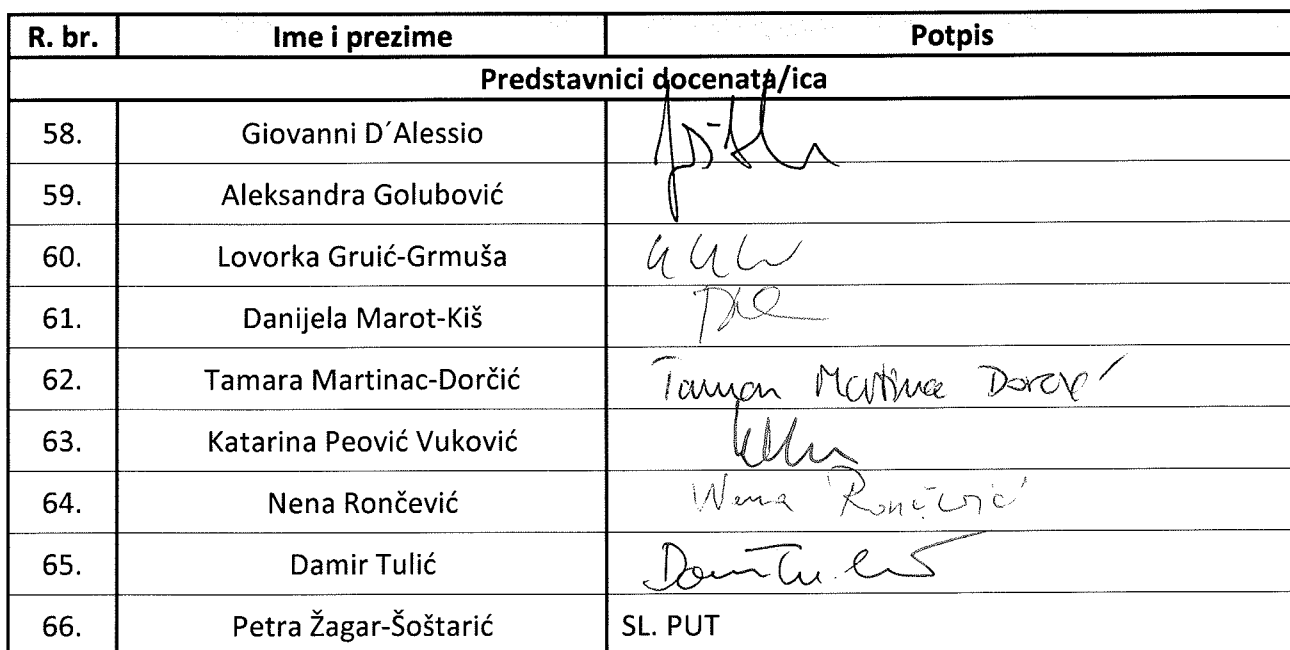 R. br. Ime i prezime Potpis
Predstavnici docenata/ica
58. Giovanni D´Alessio
59. Aleksandra Golubović
60. Lovorka Gruić-Grmuša
61. Danijela Marot-Kiš
62. Tamara Martinac-Dorčić
63. Katarina Peović Vuković
64. Nena Rončević Nena Rončević
65. Damir Tulić
66. Petra Žagar-Šoštarić SL. PUT